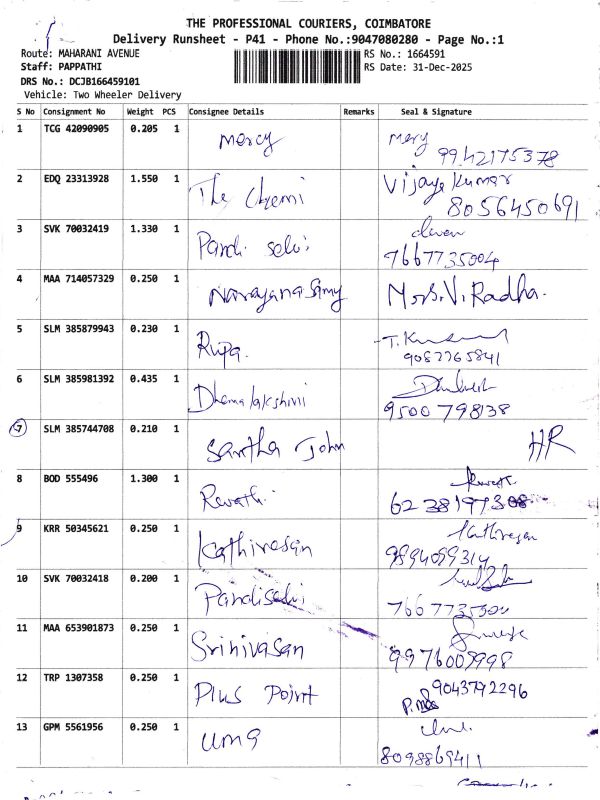 THE PROFESSIONAL COURIERS, COIMBATORE
Delivery Runsheet - P41 - Phone No.:9047080280 - Page No.:1
Route: MAHARANI AVENUE
RS No.: 1664591
Staff: PAPPATHI
RS Date: 31-Dec-2025
DRS No.: DCJB166459101
Vehicle: Two Wheeler Delivery
S No Consignment No Weight PCS Consignee Details Remarks Seal & Signature
1 TCG 42090905 0.205 1 Mercy Mercy
9942175378
2 EDQ 23313928 1.550 1 The Chemi Vijaya Kumar
8056450691
3 SVK 70032419 1.330 1 Pandi selvi
7667735004
4 MAA 714057329 0.250 1 Narayana Samy Mrs. V. Radha.
5 SLM 385879943 0.230 1 Rupa.
9087765841
6 SLM 385981392 0.435 1 Dhanalakshmi
9500798138
7 SLM 385744708 0.210 1 Santha John HR
8 BOD 555496 1.300 1 Revathi
9 KRR 50345621 0.250 1 Kathiresan Kathiresan
9894099314
10 SVK 70032418 0.200 1 Pandiselvi
11 MAA 653901873 0.250 1 Srinivasan
9976009998
12 TRP 1307358 0.250 1 Plus Point 9043792296
13 GPM 5561956 0.250 1 Uma
8098869411